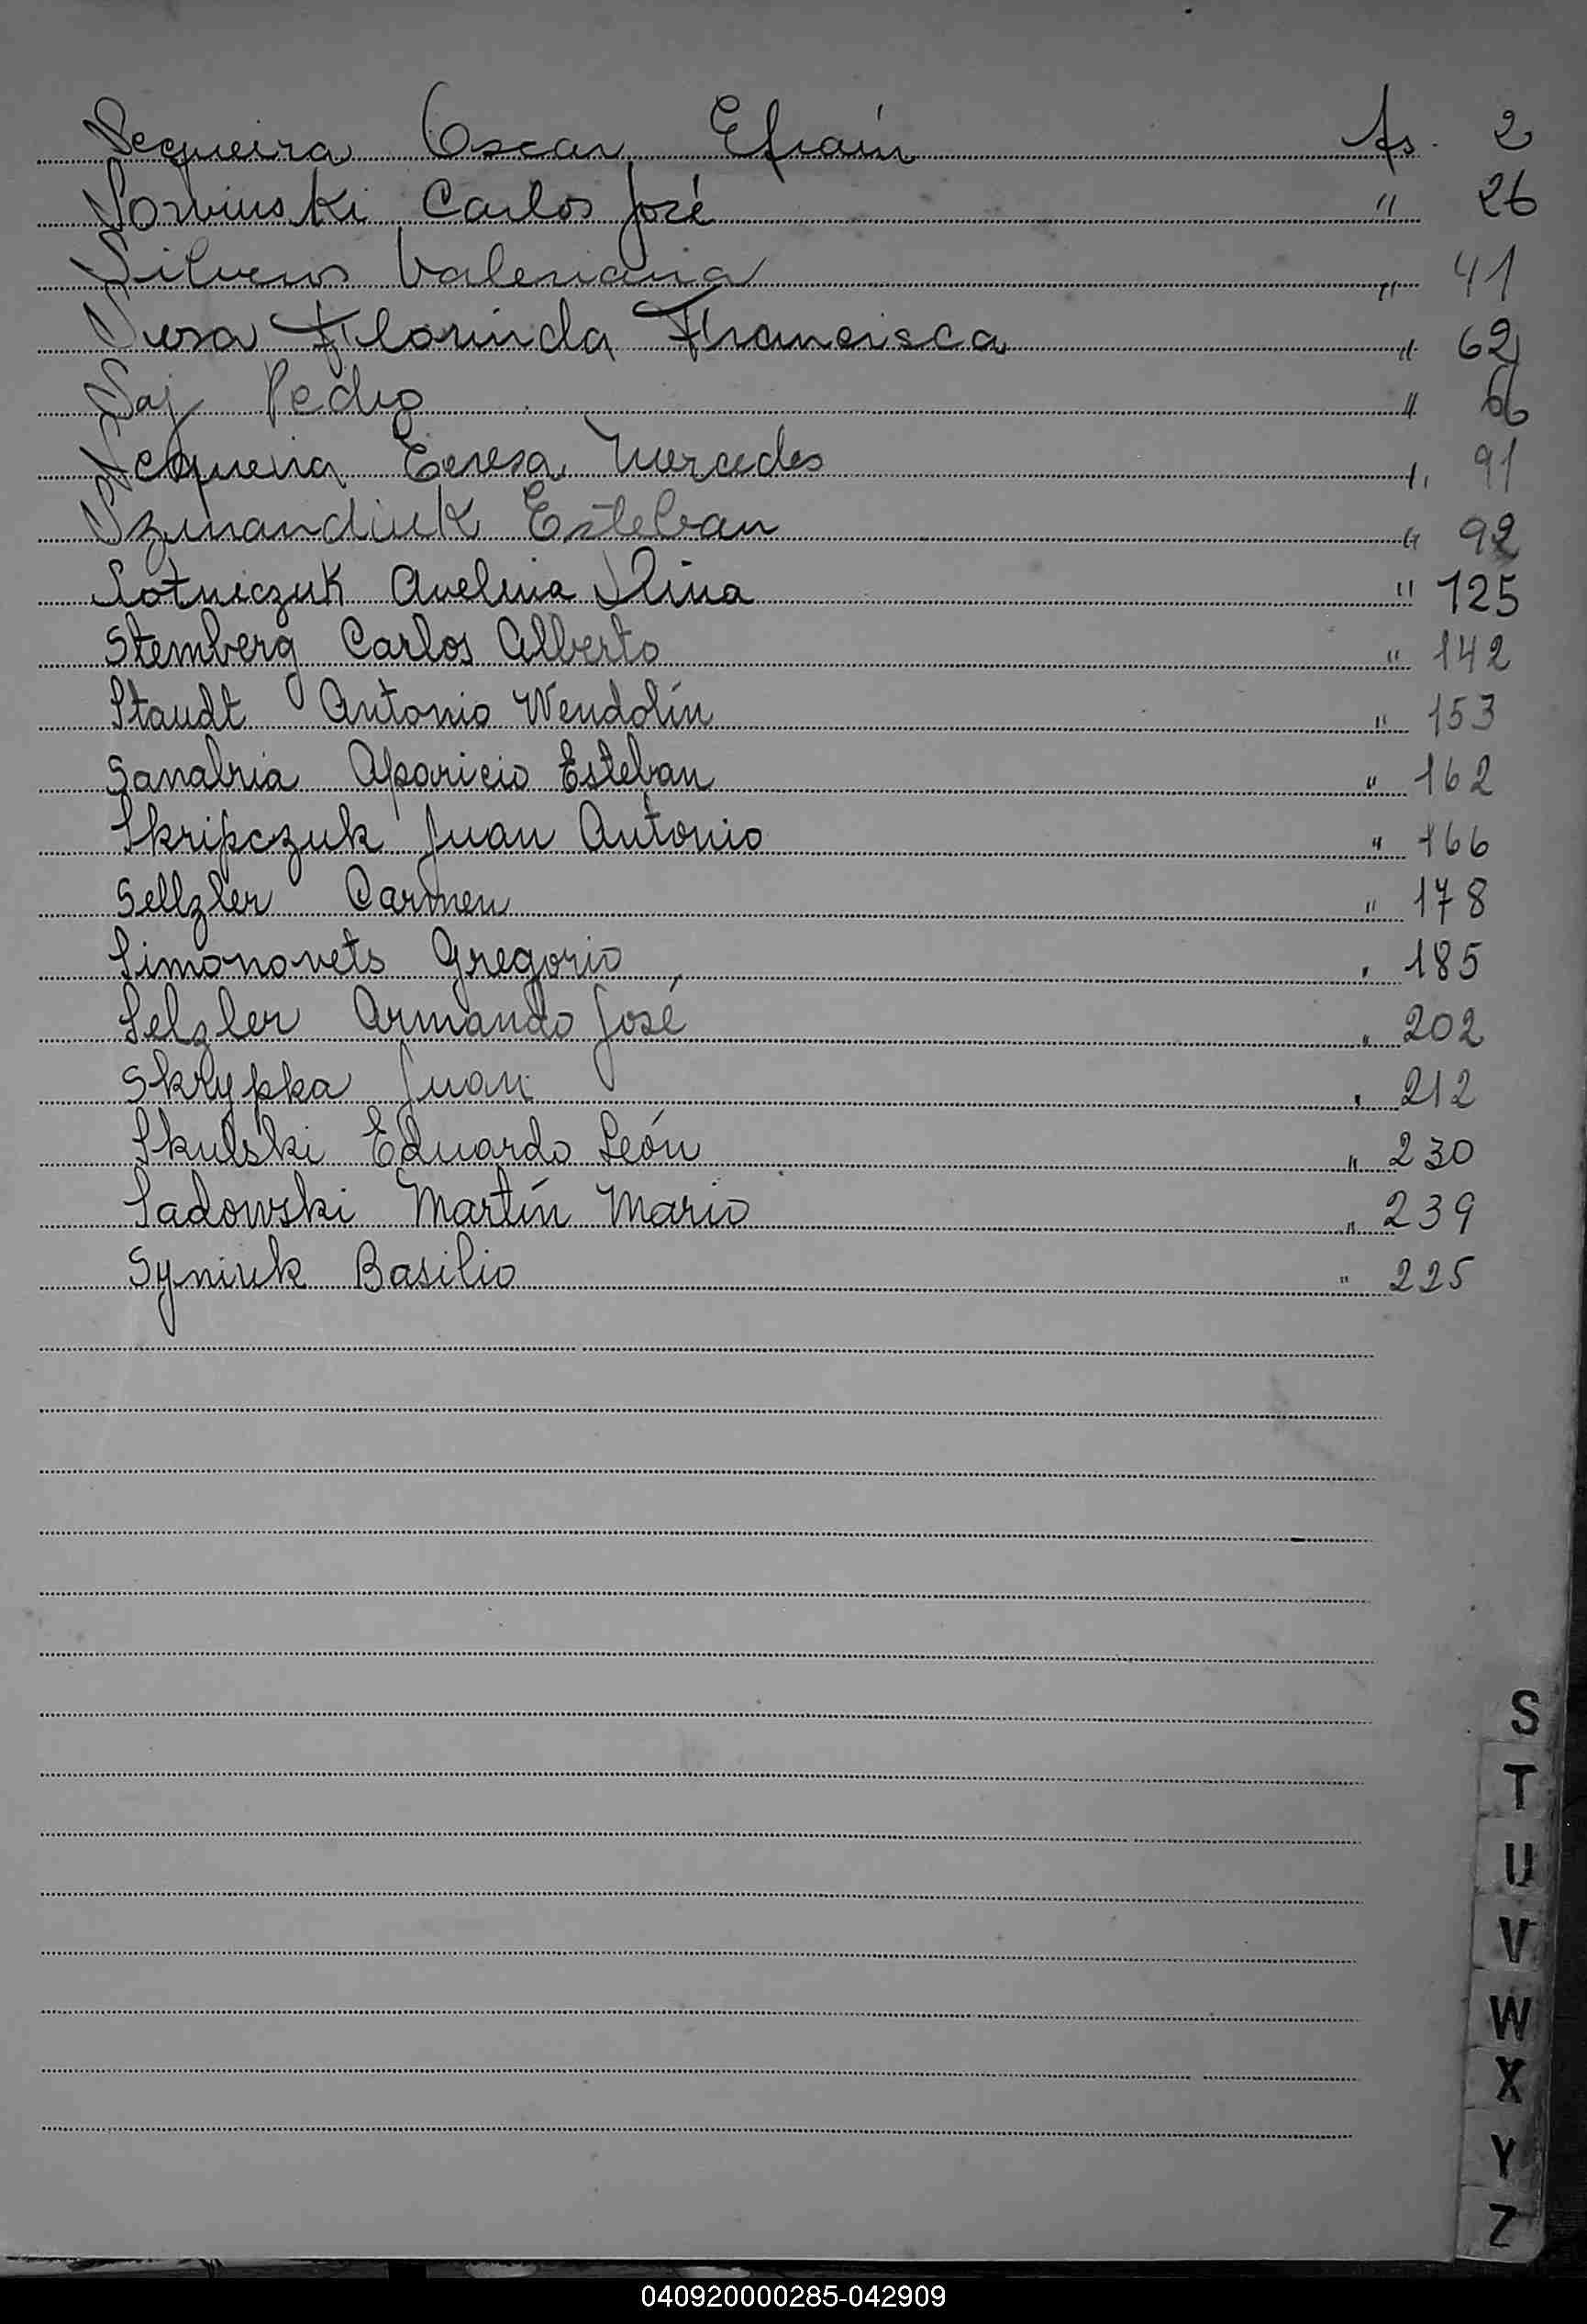 Sequeira Oscar Efraín fs. 2
Sosvinski Carlos José " 26
Silvero Valeriana " 41
Sosa Florinda Francisca " 62
Saj Pedro " 66
Sequeira Teresa Mercedes " 91
Szmandiuk Esteban " 92
Sotniczuk Avelina Alina " 125
Stemberg Carlos Alberto " 142
Staudt Antonio Wendolín " 153
Sanabria Aparicio Esteban " 162
Skripczuk Juan Antonio " 166
Sellzler Carmen " 178
Simonovets Gregorio " 185
Selzler Armando José " 202
Skrypka Juan " 212
Skulski Eduardo León " 230
Sadowski Martín Mario " 239
Syniuk Basilio " 225
S
T
U
V
W
X
Y
Z
040920000285-042909